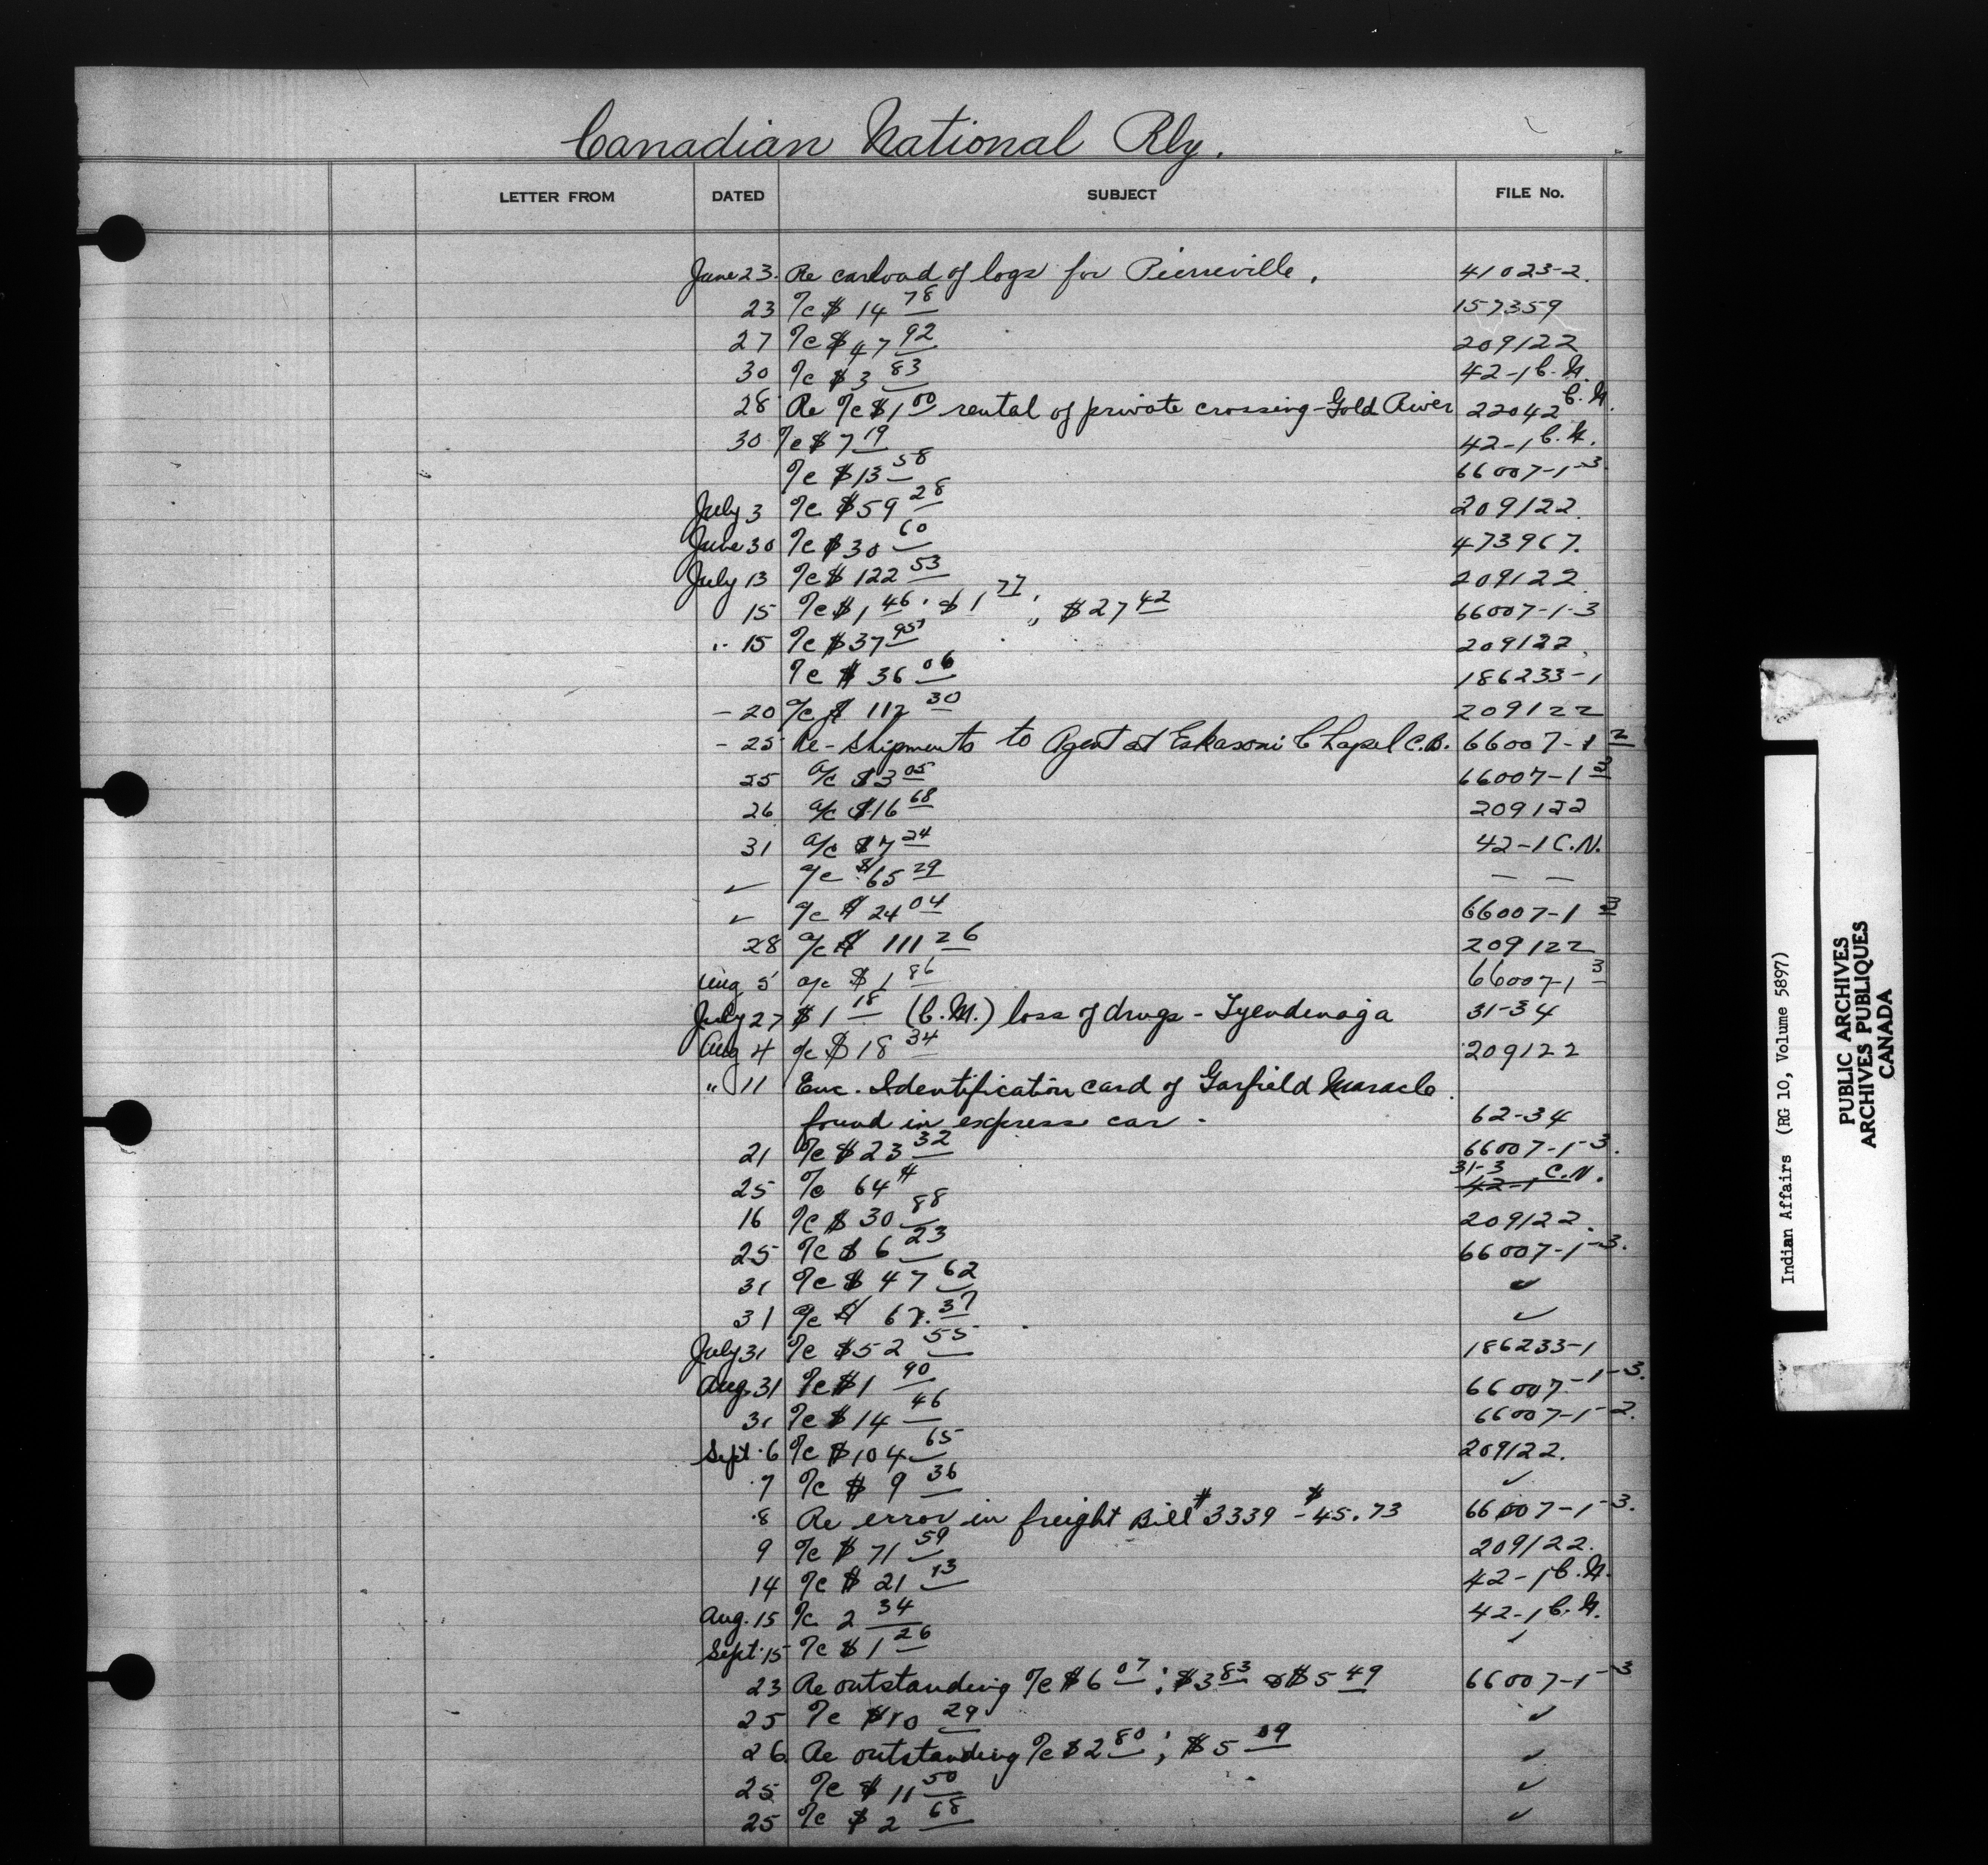 Canadian National Rly.
LETTER FROM DATED SUBJECT FILE No.
June 23. Re carload of logs for Pierreville. 41023-2.
23 a/c $14 78 157359
27 a/c $47 92 209122
30 a/c $3 83 42-1 C.N.
28 Re a/c $1 00 rental of private crossing - Gold River 22042 C.N.
30 a/c $7 19 42-1 C.N.
a/c $13 58 66007-1-3
July 3 a/c $59 28 209122.
June 30 a/c $30 60 473967.
July 13 a/c $122 53 209122
15 a/c $1 46; $1 77; $27 42 66007-1-3
" 15 a/c $37 95 209122.
a/c $36 06 186233-1
- 20 a/c $112 30 209122
- 25 Re - Shipments to Agent at Eskasoni Chapel C.B. 66007-1 2
25 a/c $3 05 66007-1 3
26 a/c $16 68 209122
31 a/c $7 24 42-1 C.N.
✓ a/c $65 29 — —
✓ a/c $24 04 66007-1 3
28 a/c $111 26 209122
Aug 5 a/c $1 86 66007-1 3
July 27 $1 18 (C.M.) loss of drugs - Tyendenaga 31-34
Aug 4 a/c $18 34 209122
" 11 Enc. Identification card of Garfield Maracle
found in express car - 62-34
21 a/c $23 32 66007-1-3.
31-3
25 a/c 64¢ 42-1 C.N.
16 a/c $30 88 209122.
25 a/c $6 23 66007-1-3.
31 a/c $47 62 ✓
31 a/c $67.37 ✓
July 31 a/c $52 55 186233-1
Aug. 31 a/c $1 90 66007-1-3.
31 a/c $14 46 66007-1-2.
Sept. 6 a/c $104 65 209122.
7 a/c $9 36 ✓
8 Re error in freight Bill #3339 - $45.73 66007-1-3.
9 a/c $71 59 209122.
14 a/c $21 13 42-1 C.N.
Aug. 15 a/c 2 34 42-1 C.N.
Sept. 15 a/c $1 26 ✓
23 Re outstanding a/c $6 07; $3 83 & $5 49 66007-1-3
25 a/c $10 29 ✓
26. Re outstanding a/c $2 80; $5 09 ✓
25 a/c $11 50 ✓
25 a/c $2 68 ✓
Indian Affairs (RG 10, Volume 5897)
PUBLIC ARCHIVES
ARCHIVES PUBLIQUES
CANADA